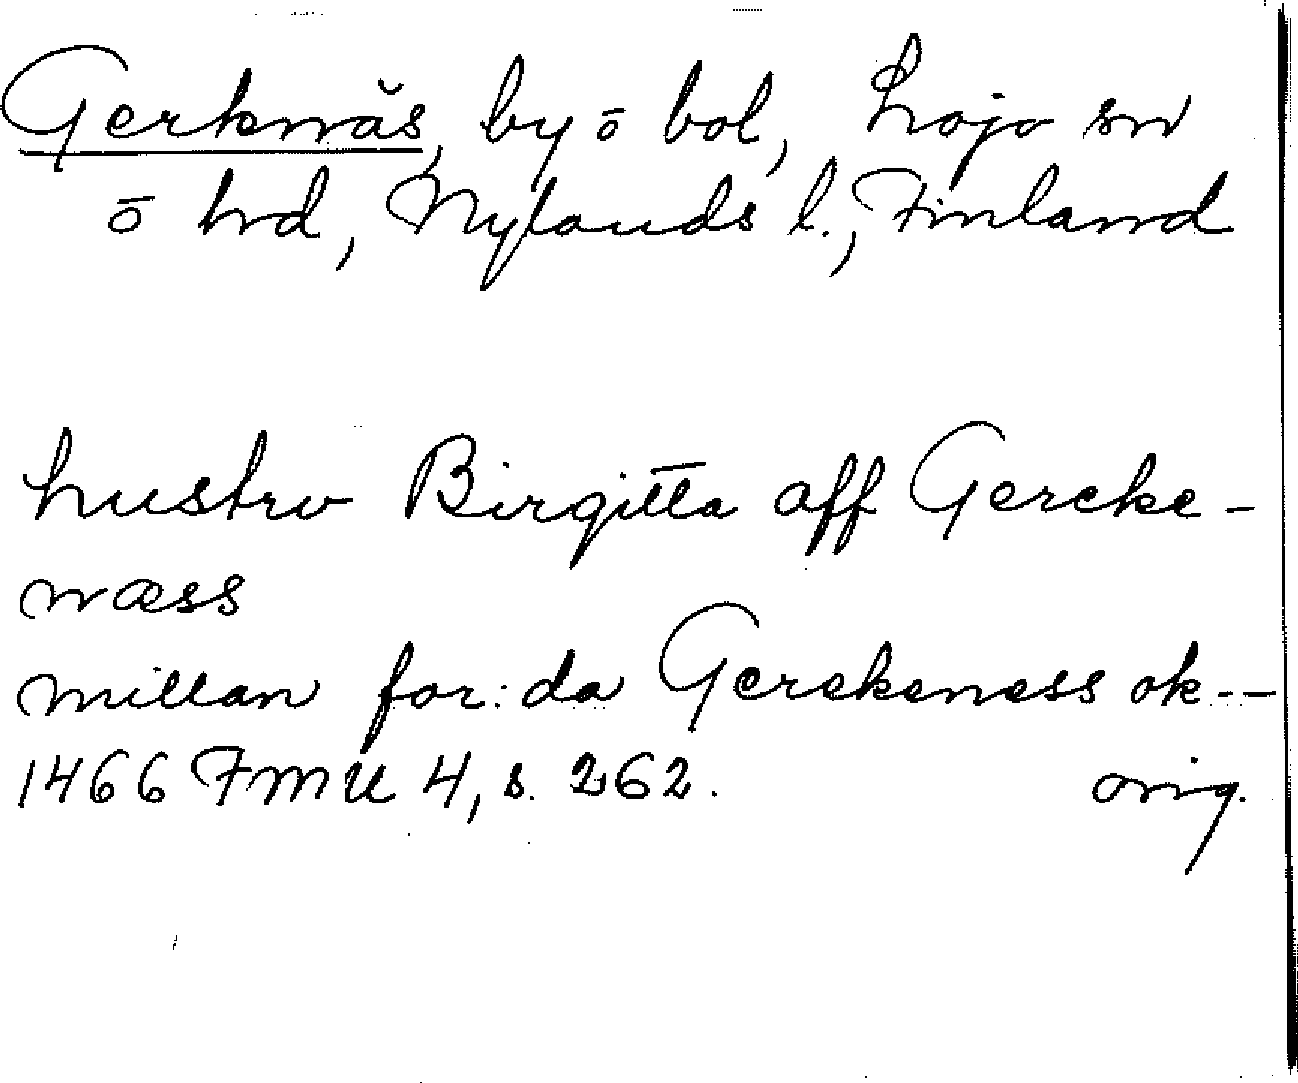 Gerknäs, by o bol, Lojo sn
o hrd, Nylands l., Finland
hustrv Birgitta aff Gercke-
næss
millan for:da Gerckeness ok--
1466 FMU 4, s. 262. orig.